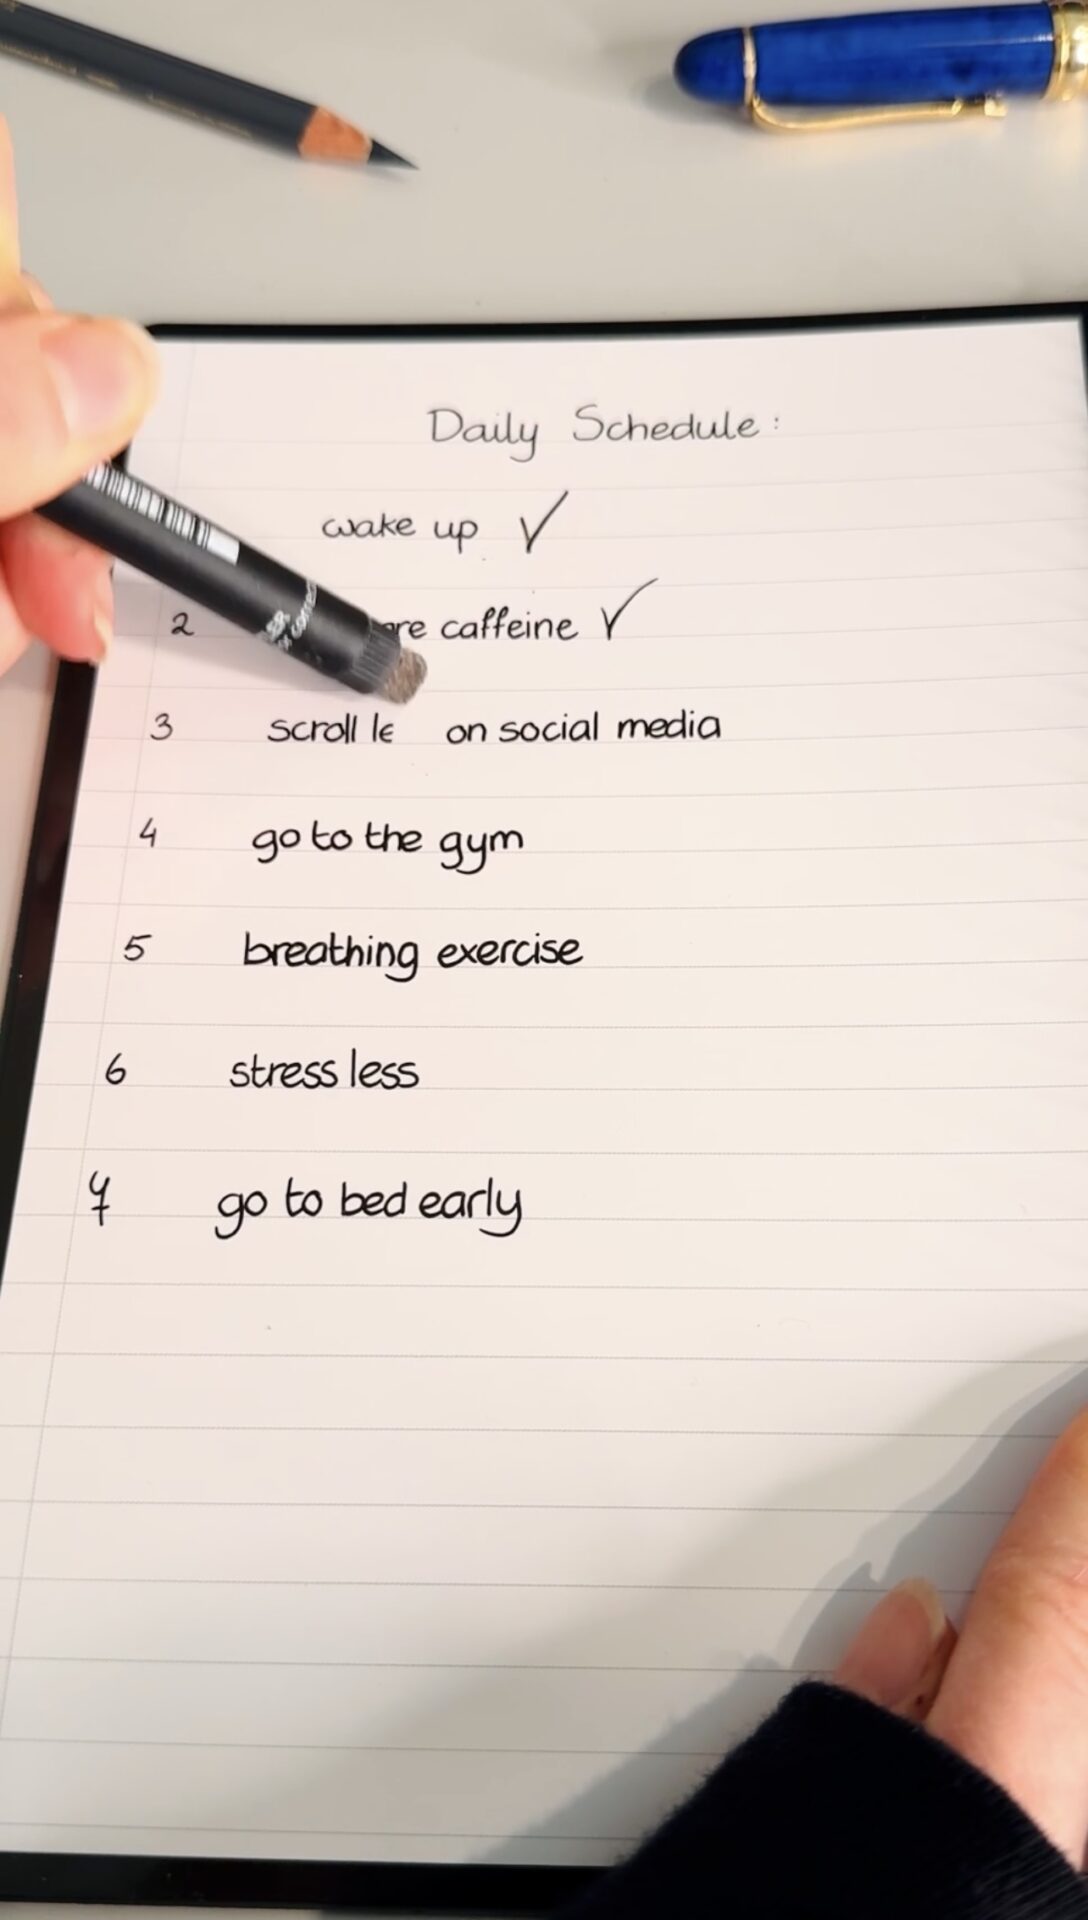 Daily Schedule:
wake up ✓
2 caffeine ✓
3 scroll le on social media
4 go to the gym
5 breathing exercise
6 stress less
7 go to bed early